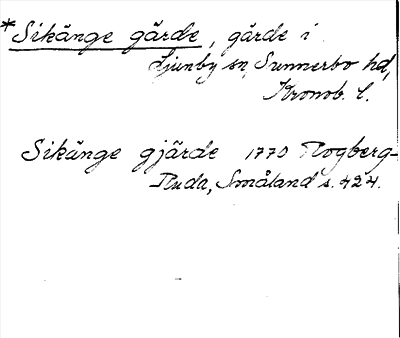 *Sikänge gärde, gärde i
Ljunby sn, Sunnerbo hd,
Kronob. l.
Sikänge gjärde 1770 Rogberg-
Ruda, Småland s. 424.